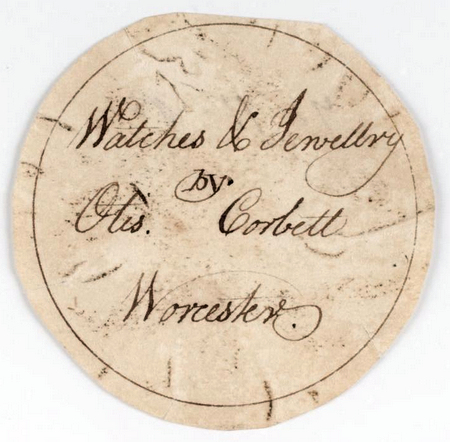 Watches & Jewellry
by.
Otis. Corbett
Worcester.